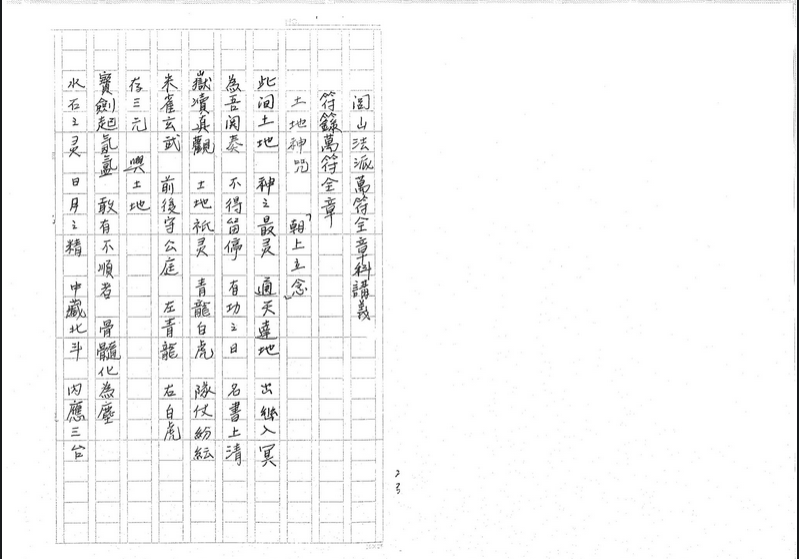 閭山法派萬符全章科講義
符籙萬符全章
土地神咒 「朝上立念」
此间土地 神之最灵 通天達地 出幽入冥
為吾関奏 不得留停 有功之日 名書上清
嶽瀆真觀 土地祇灵 青龍白虎 隊仗紛紜
朱雀玄武 前後守公庭 左青龍 右白虎
存三元 與土地
寶劍起氤氳 敢有不順者 骨髓化為塵
水石之灵 日月之精 中藏北斗 內應三台
23